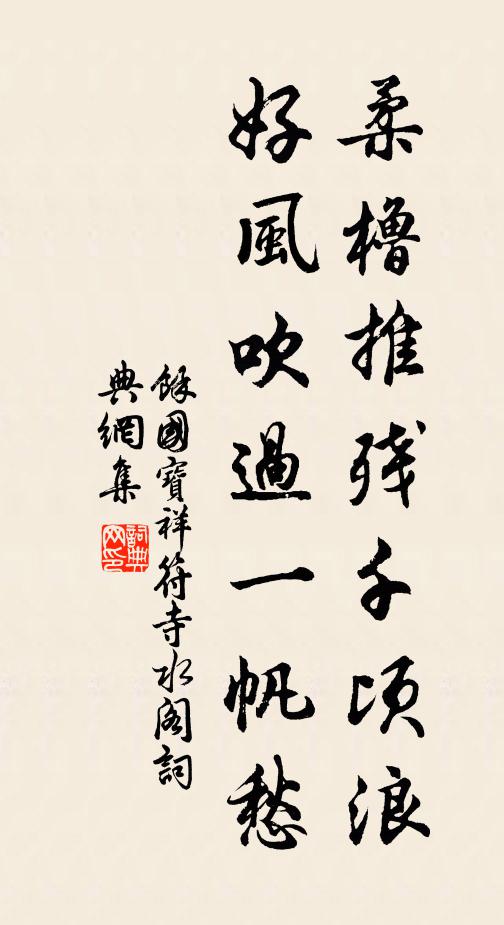 柔櫓推残千頃浪
好風吹過一帆愁
餘國寶祥符寺水閣詞
典網集
詞典網印